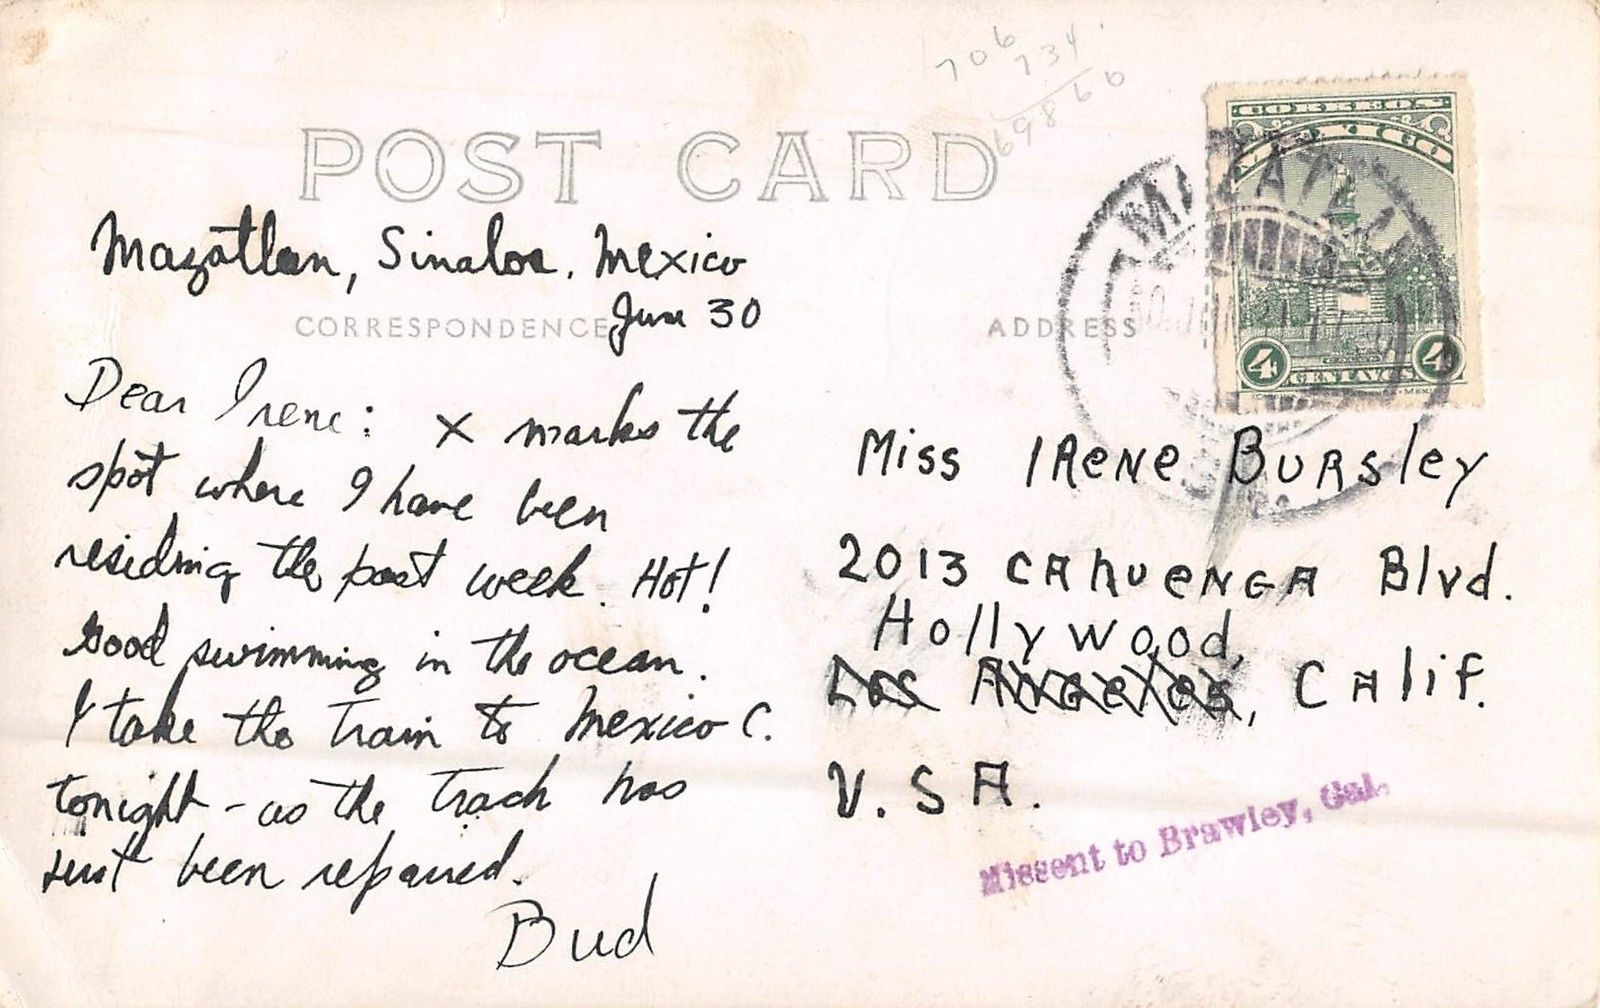 706
734
69860
POST CARD
CORREOS
MEXICO
4 CENTAVOS 4
MAZATLAN
Mazatlan, Sinaloa, Mexico
June 30
CORRESPONDENCE
ADDRESS
Dear Irene: X marks the
spot where I have been
residing the past week. Hot!
Good swimming in the ocean.
I take the train to Mexico C.
tonight - as the track has
just been repaired.
Bud
Miss IRENE BURSley
2013 CAhUENGA Blvd.
Hollywood,
Los Angeles, CAlif.
U.S.A.
Missent to Brawley, Cal.